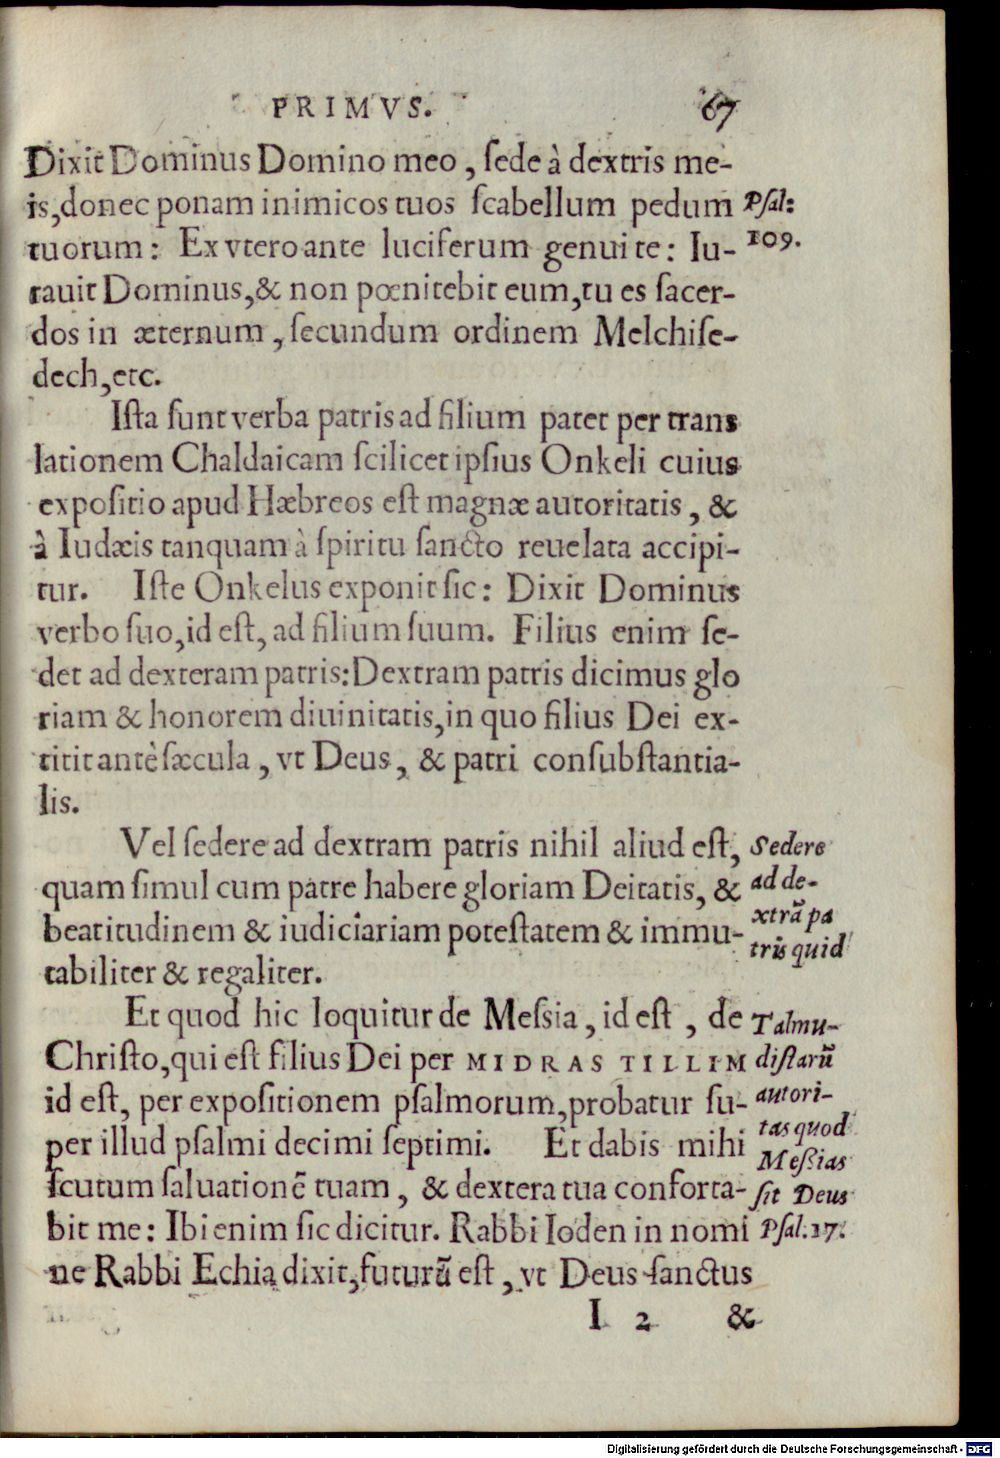 PRIMVS. 67
Dixit Dominus Domino meo, ſede à dextris me-
is, donec ponam inimicos tuos ſcabellum pedum
tuorum: Ex vtero ante luciferum genui te: Iu-
rauit Dominus, & non pœnitebit eum, tu es ſacer-
dos in æternum, ſecundum ordinem Melchiſe-
dech, etc.
Psal:
109.
Iſta ſunt verba patris ad filium patet per trans
lationem Chaldaicam ſcilicet ipſius Onkeli cuius
expoſitio apud Hæbreos eſt magnæ autoritatis, &
à Iudæis tanquam à ſpiritu ſancto reuelata accipi-
tur. Iſte Onkelus exponit ſic: Dixit Dominus
verbo ſuo, id eſt, ad filium ſuum. Filius enim ſe-
det ad dexteram patris: Dextram patris dicimus glo
riam & honorem diuinitatis, in quo filius Dei ex-
titit antè ſæcula, vt Deus, & patri conſubſtantia-
lis.
Vel ſedere ad dextram patris nihil aliud eſt,
quam ſimul cum patre habere gloriam Deitatis, &
beatitudinem & iudiciariam poteſtatem & immu-
tabiliter & regaliter.
Sedere
ad de-
xtrã pa
tris quid
Et quod hic loquitur de Meſsia, id eſt, de
Chriſto, qui eſt filius Dei per MIDRAS TILLIM
id eſt, per expoſitionem pſalmorum, probatur ſu-
per illud pſalmi decimi ſeptimi. Et dabis mihi
ſcutum ſaluationē tuam, & dextera tua conforta-
bit me: Ibi enim ſic dicitur. Rabbi Ioden in nomi
ne Rabbi Echia dixit, futurũ eſt, vt Deus ſanctus
Talmu-
diſtarũ
autori-
tas quod
Meſsias
ſit Deus
Pſal. 17.
I 2 &
Digitalisierung gefördert durch die Deutsche Forschungsgemeinschaft - DFG